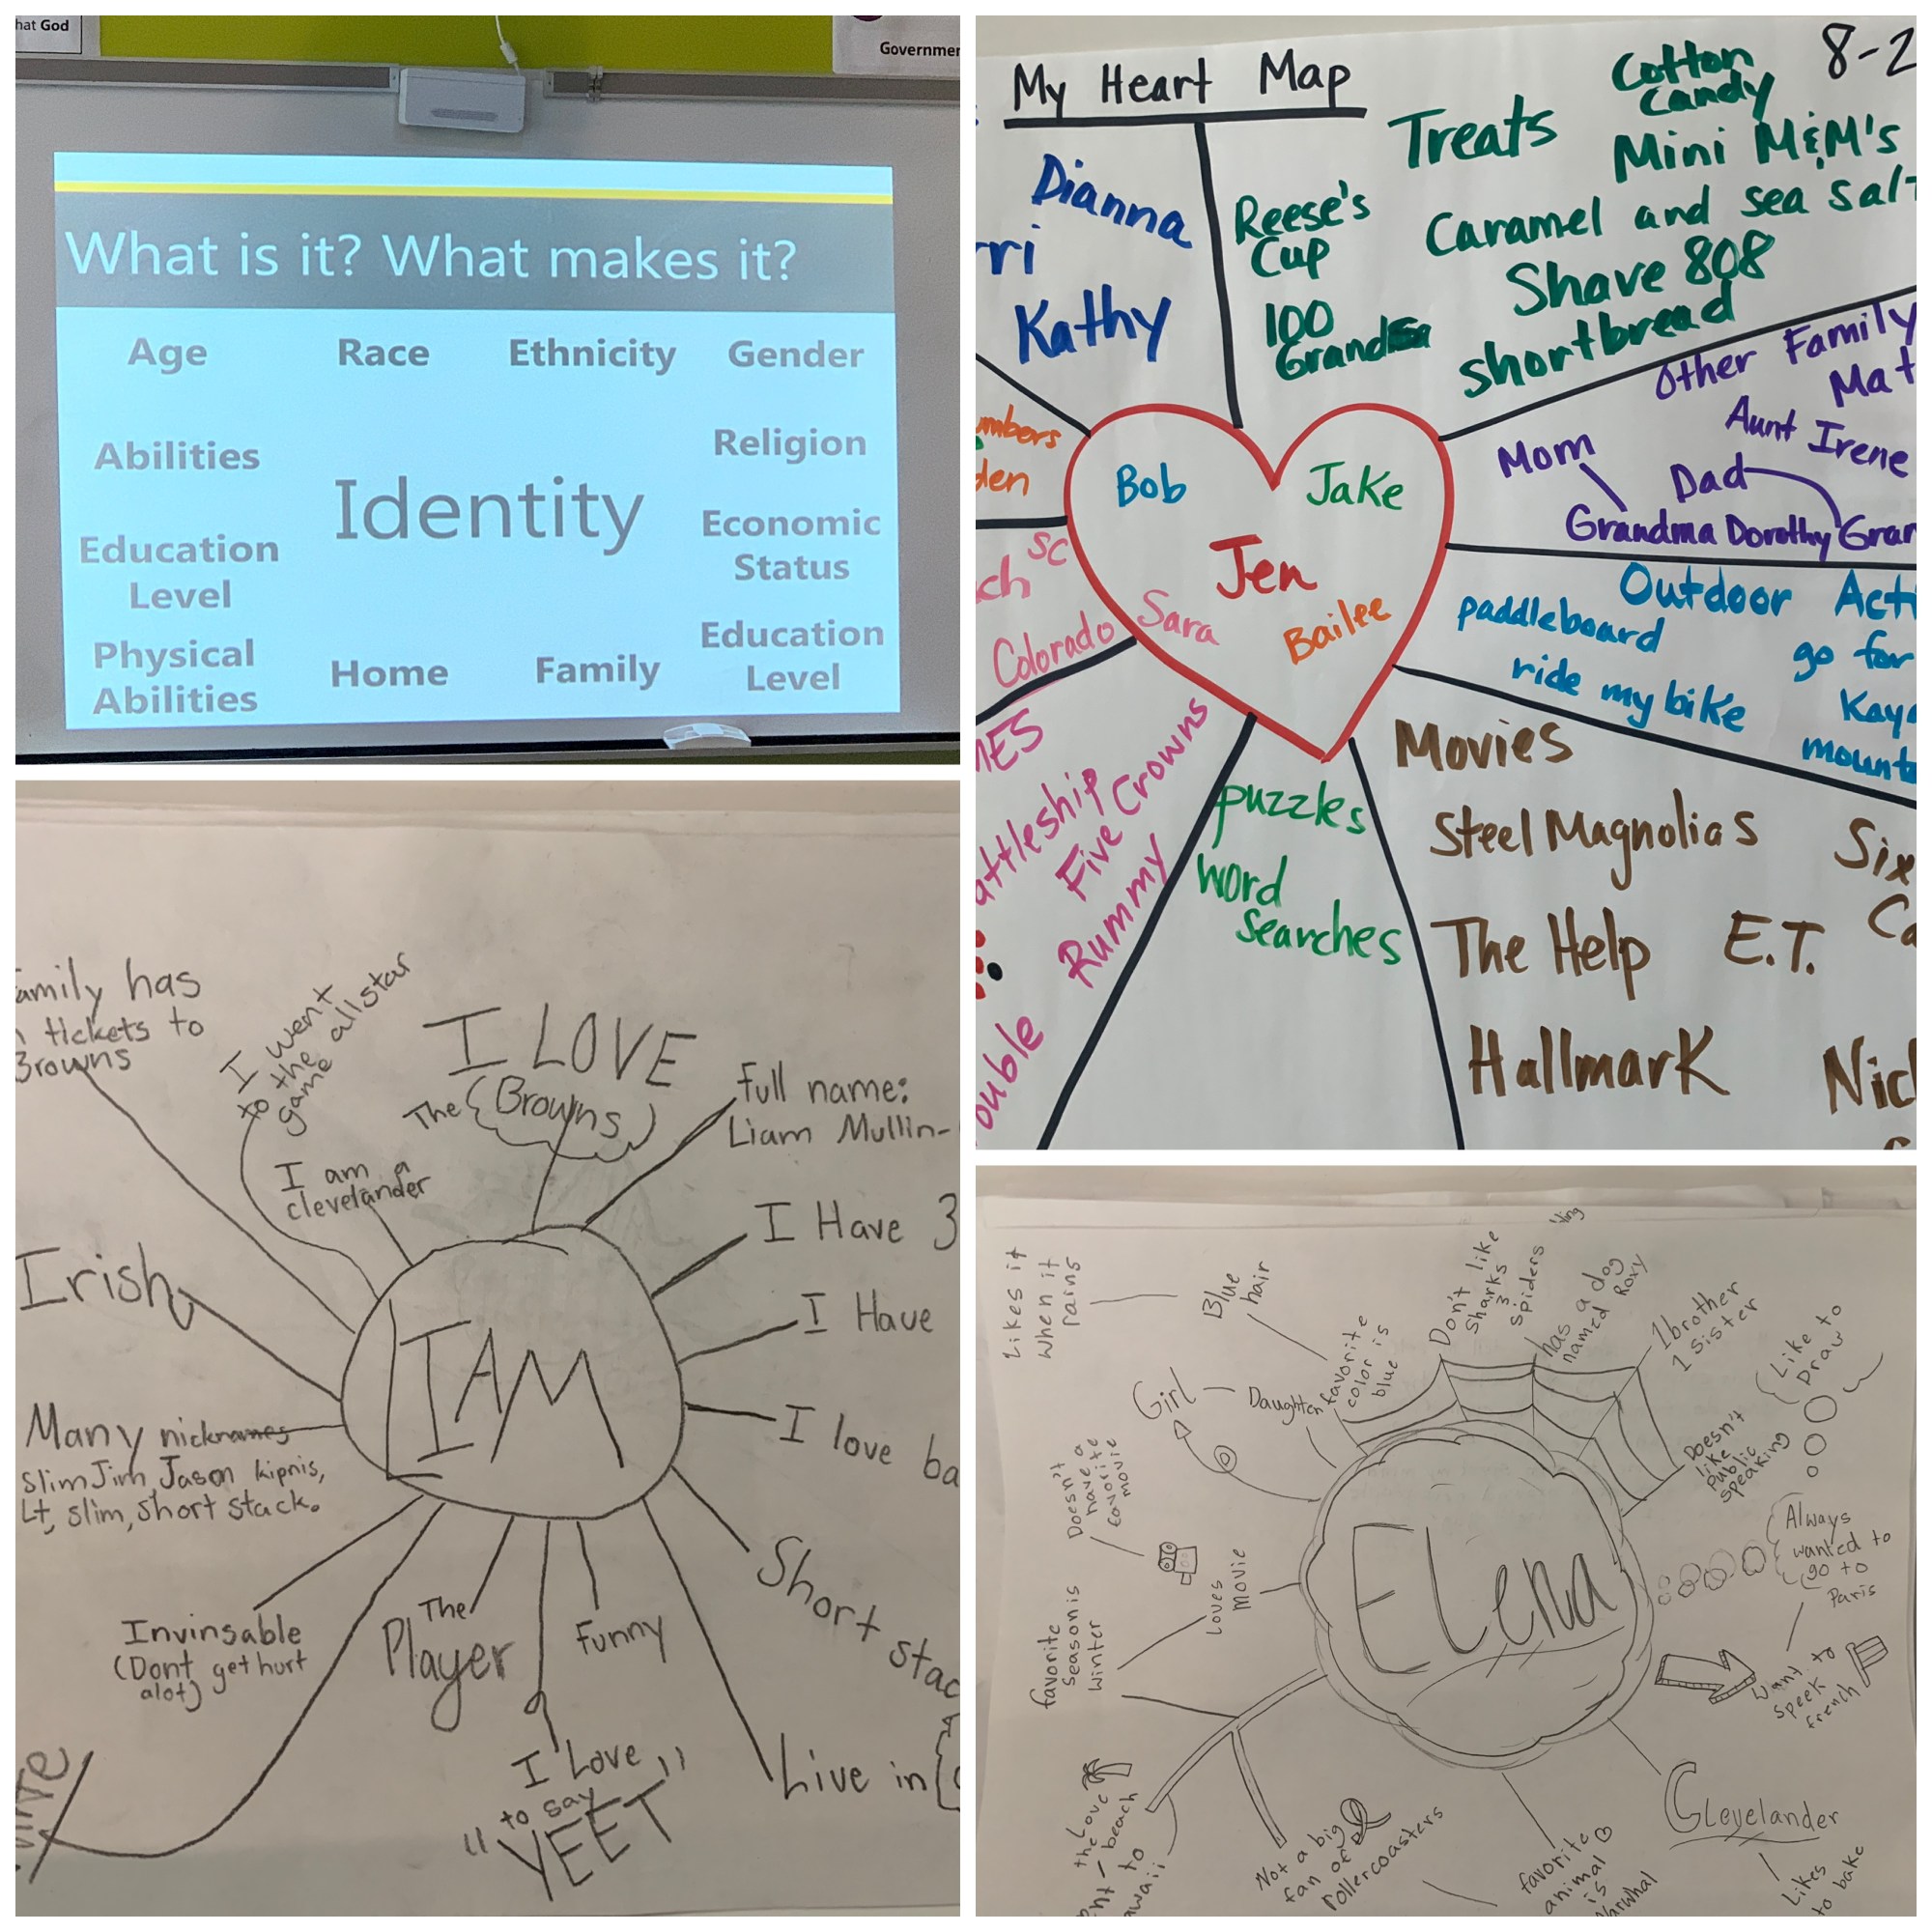 hat God
Governmer
What is it? What makes it?
Age Race Ethnicity Gender
Abilities Religion
Identity
Education
Level
Economic
Status
Physical
Abilities
Home Family
Education
Level
My Heart Map
8-2
Dianna
rri
Kathy
Treats
Cotton
Candy
Mini M&M's
Reese's
Cup
Caramel and sea salt
100
Grand
Shave 808
shortbread
Other Family
Mat
Aunt Irene
Mom
Dad
Grandma Dorothy Gran
umbers
den
Bob
Jake
Jen
Sara
Bailee
SC
ch
Colorado
Outdoor Acti
paddleboard
go for
ride my bike
Kaya
mounta
MES
attleship
Five Crowns
Rummy
ouble
puzzles
word
searches
Movies
Steel Magnolias
Six
The Help
E.T.
Ca
Hallmark
Nic
amily has
n tickets to
Browns
I went
to the allstar
game
I LOVE
The Browns
full name:
Liam Mullin-
I am a
clevelander
I Have 3
Irish
I Have
I AM
Many nicknames
SlimJim, Jason kipnis,
Lt, slim, short stack.
I love ba
Short stac
Invinsable
(Dont get hurt
alot)
The
Player
Funny
I Love
to say
"YEET"
Live in
Likes it
when it
rains
Blue
hair
Don't like
sharks
&
spiders
has a dog
named Roxy
1 brother
1 sister
Like to
Draw
Girl
Daughter
favorite
color is
blue
Doesn't
like
public
speaking
Doesn't
have a
favorite
movie
Elena
Always
wanted to
go to
Paris
Loves
movie
favorite
season is
winter
Want to
speek
french
Love
the
beach
to
awaii
Not a big
fan of
rollercoasters
favorite
animal
is
Narwhal
Clevelander
Likes
to bake